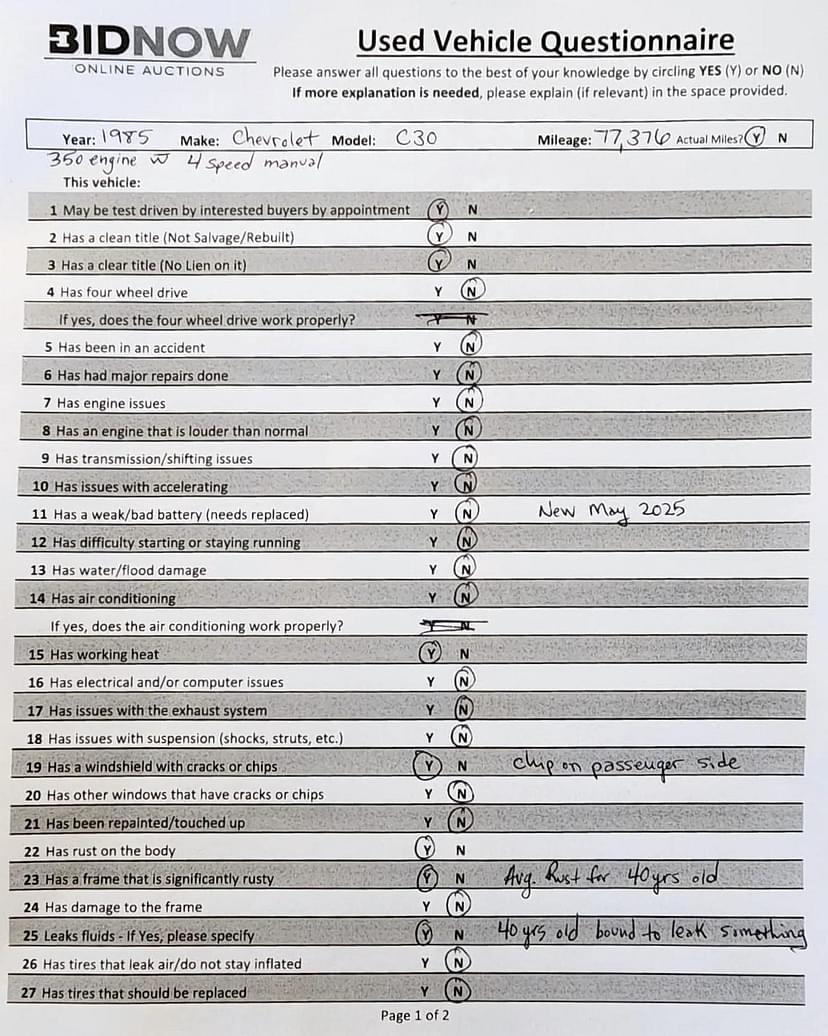 BIDNOW
ONLINE AUCTIONS
Used Vehicle Questionnaire
Please answer all questions to the best of your knowledge by circling YES (Y) or NO (N)
If more explanation is needed, please explain (if relevant) in the space provided.
Year: 1985 Make: Chevrolet Model: C30 Mileage: 77,376 Actual Miles? Y N
350 engine w 4 speed manual
This vehicle:
1 May be test driven by interested buyers by appointment Y N
2 Has a clean title (Not Salvage/Rebuilt) Y N
3 Has a clear title (No Lien on it) Y N
4 Has four wheel drive Y N
If yes, does the four wheel drive work properly? Y N
5 Has been in an accident Y N
6 Has had major repairs done Y N
7 Has engine issues Y N
8 Has an engine that is louder than normal Y N
9 Has transmission/shifting issues Y N
10 Has issues with accelerating Y N
11 Has a weak/bad battery (needs replaced) Y N New May 2025
12 Has difficulty starting or staying running Y N
13 Has water/flood damage Y N
14 Has air conditioning Y N
If yes, does the air conditioning work properly? Y N
15 Has working heat Y N
16 Has electrical and/or computer issues Y N
17 Has issues with the exhaust system Y N
18 Has issues with suspension (shocks, struts, etc.) Y N
19 Has a windshield with cracks or chips Y N chip on passenger side
20 Has other windows that have cracks or chips Y N
21 Has been repainted/touched up Y N
22 Has rust on the body Y N
23 Has a frame that is significantly rusty Y N Avg. Rust for 40 yrs old
24 Has damage to the frame Y N
25 Leaks fluids - If Yes, please specify Y N 40 yrs old bound to leak something
26 Has tires that leak air/do not stay inflated Y N
27 Has tires that should be replaced Y N
Page 1 of 2